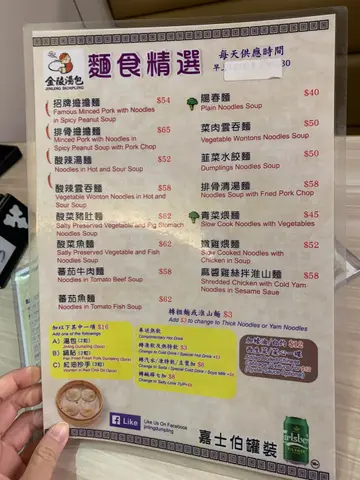 金陵湯包
JINLING DUMPLING
麵食精選
每天供應時間
早
30
招牌擔擔麵 $54
Famous Minced Pork with Noodles
in Spicy Peanut Soup
排骨擔擔麵 $65
Minced Pork with Noodles in
Spicy Peanut Soup with Pork Chop
酸辣湯麵 $52
Noodles in Hot and Sour Soup
酸辣雲吞麵 $58
Vegetable Wonton Noodles in Hot and
Sour Soup
酸菜豬肚麵 $62
Salty Preserved Vegetable and Pig Stomach
Noodles Soup
酸菜魚麵 $62
Salty Preserved Vegetable and Fish
Noodles Soup
蕃茄牛肉麵 $58
Noodles in Tomato Beef Soup
蕃茄魚麵 $62
Noodles in Tomato Fish Soup
陽春麵 $40
Plain Noodles Soup
菜肉雲吞麵 $50
Vegetable Wontons Noodles Soup
韮菜水餃麵 $50
Dumplings Noodles Soup
排骨清湯麵 $58
Noodles Soup with Fried Pork Chop
青菜煨麵 $45
Slow Cook Noodles with Vegetables
嫩雞煨麵 $52
Slow Cooked Noodles with
Chicken in Soup
麻醬雞絲拌淮山麵 $58
Shredded Chicken with Cold Yam
Noodles in Sesame Sauce
轉粗麵或淮山麵 $3
Add $3 to change to Thick Noodles or Yam Noodles
加以下其中一項 $16
Add one of the followings
A) 湯包 (2粒)
Jinling Dumpling (2pcs)
B) 鍋貼
C) 紅油抄手
奉送熱飲
Complimentary Hot Drink
$3
$6
$8
$12
Like
Like Us On Facebook
jinlingdumpling
Carlsberg
嘉士伯罐裝